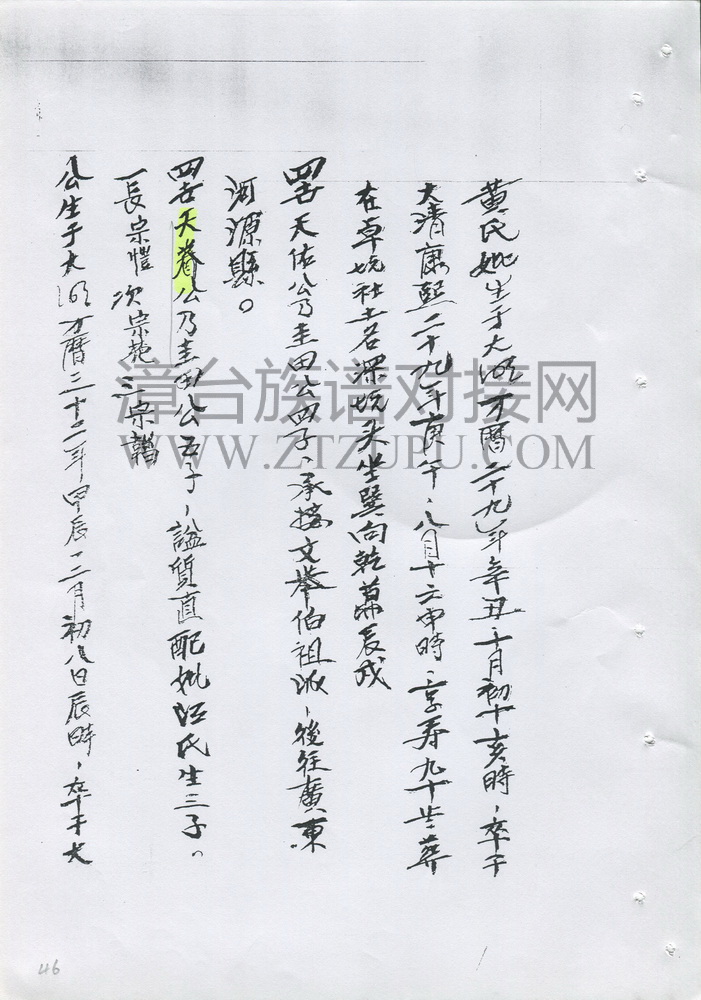 黃氏妣生于大明万曆二十九年辛丑、十月初十亥時，卒于
大清康熙二十九年庚午、八月十六申時，享寿九十岁葬
在卓坑社土名深坑头坐巽向乾兼辰戌
四世天佑公乃圭田公四子、承接文举伯祖派，後往廣東
河源縣。
四世天眷公乃圭田公五子，諡質直配妣江氏生三子。
一長宗愷 次宗 三宗
公生于大明万曆三十二年，甲辰、二月初八日辰時，卒于大
漳台族谱对接网
WWW.ZTZUPU.COM
46